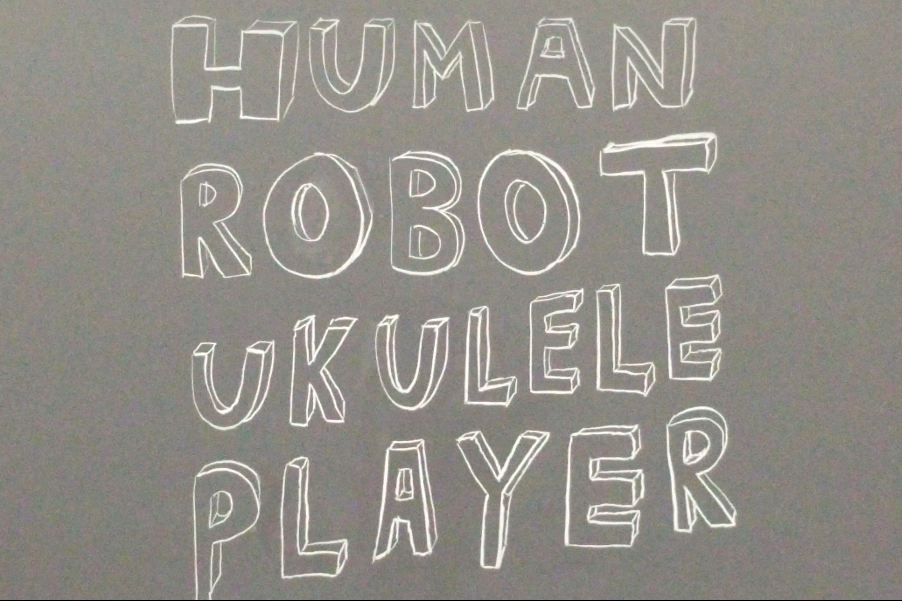 HUMAN
ROBOT
UKULELE
PLAYER